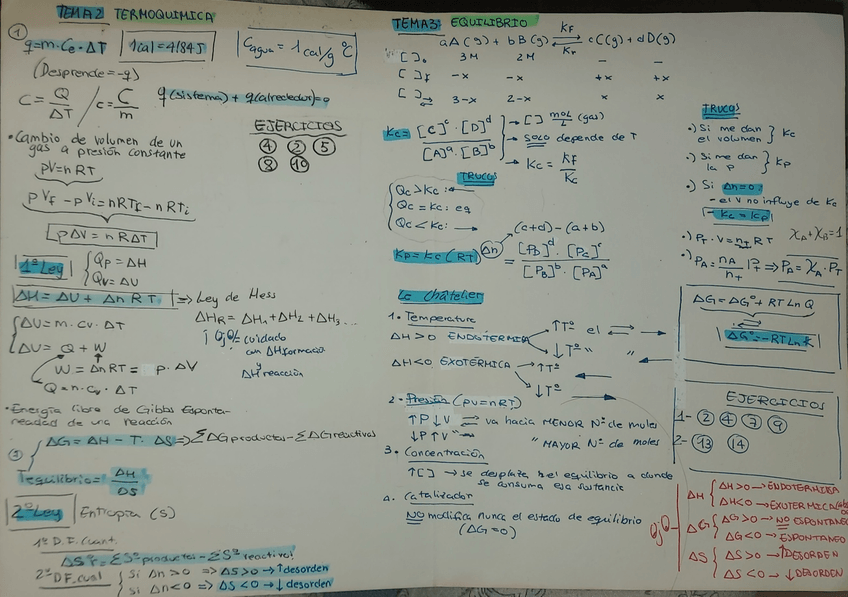 TEMA 2 TERMOQUIMICA
①
q=m·Ce·ΔT
1cal=4'184J
Cagua = 1cal/g ºC
(Desprende=-q)
C = Q/ΔT / c = C/m
q(sistema) + q(alrededor)=0
·Cambio de volumen de un
gas a presión constante
PV=nRT
EJERCICIOS
④ ② ⑤
⑧ ⑩
P Vf - P Vi = nRTf - nRTi
PΔV = nRΔT
1ºLey
Qp=ΔH
Qv=ΔU
ΔH = ΔU + Δn R T ⇒ Ley de Hess
ΔHR = ΔH1 + ΔH2 + ΔH3 ...
¡ OjO! cuidado
con ΔHformacio
y
ΔHreacción
ΔU = m·cv·ΔT
ΔU = Q + W
W = ΔnRT = P·ΔV
Q=n·cv·ΔT
·Energia libre de Gibbs Esponta-
neadad de una reacción
ΔG = ΔH - T·ΔS ⇒ ΣΔGproductos - ΣΔGreactivos
Tequilibrio = ΔH/ΔS
2ºLey Entropia (S)
1º D.F. Cuant.
ΔSºr = ΣSº productos - ΣSº reactivos
2º D.F. cual
Si Δn>0 ⇒ ΔS>0 → ↑desorden
si Δn<0 ⇒ ΔS<0 → ↓desorden
TEMA3: EQUILIBRIO
aA(g) + bB(g) ⇄ cC(g) + dD(g)
Kf
Kr
[ ]o 3M 2M - -
[ ]f -x -x +x +x
[ ]⇄ 3-x 2-x x x
Kc = [C]^c·[D]^d / [A]^a·[B]^b
→ [ ] mol/L (gas)
→ SOLO depende de T
→ Kc = Kf/Kc
TRUCOS
Qc > Kc: ←
Qc = Kc: eq
Qc < Kc: →
(c+d) - (a+b)
Kp = Kc (RT)^Δn = [PB]^d·[Pc]^c / [PB]^b·[PA]^a
Le Châtelier
1. Temperatura
ΔH>0 ENDOTERMICA
↑Tº el ⇄ →
↓Tº " " ←
ΔH<0 EXOTÉRMICA
↑Tº ←
↓Tº →
2. Presión (PV=nRT)
↑P ↓V = va hacia MENOR Nº de moles
↓P ↑V " " MAYOR Nº de moles
3. Concentración
↑[ ] → se desplaza el equilibrio a donde
se consuma esa sustancia
a. Catalizador
NO modifica nunca el estado de equilibrio
(ΔG=0)
TRUCOS
·) Si me dan
el volumen } Kc
·) Si me dan
la P } Kp
·) Si Δn=0:
- el V no influye de Kc
- Kc = Kp
·) PT·V = nT RT
XA+XB=1
·) PA = nA/nT PT ⇒ PA = XA·PT
ΔG = ΔGº + RT Ln Q
ΔGº = -RT Ln K
EJERCICIOS
1- ② ④ ⑦ ⑨
2- ⑬ ⑭
OjO
ΔH
ΔH>0 → ENDOTERMICA
ΔH<0 → EXOTERMICA
ΔG
ΔG>0 → NO ESPONTANEO
ΔG<0 → ESPONTANEO
ΔS
ΔS>0 → ↑DESORDEN
ΔS<0 → ↓DESORDEN